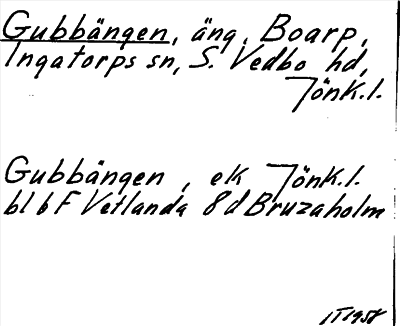 Gubbängen, äng, Boarp,
Ingatorps sn, S. Vedbo hd,
Jönk.l.
Gubbängen, ek Jönk.l.
bl 6 F Vetlanda 8d Bruzaholm
IT 1958